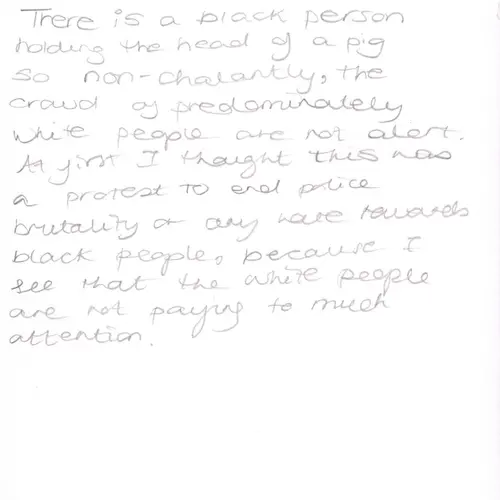 There is a black person
holding the head of a pig
so non-chalantly, the
crowd of predominately
white people are not alert.
At first I thought this was
a protest to end police
brutality or any hate towards
black people, because I
see that the white people
are not paying to much
attention.